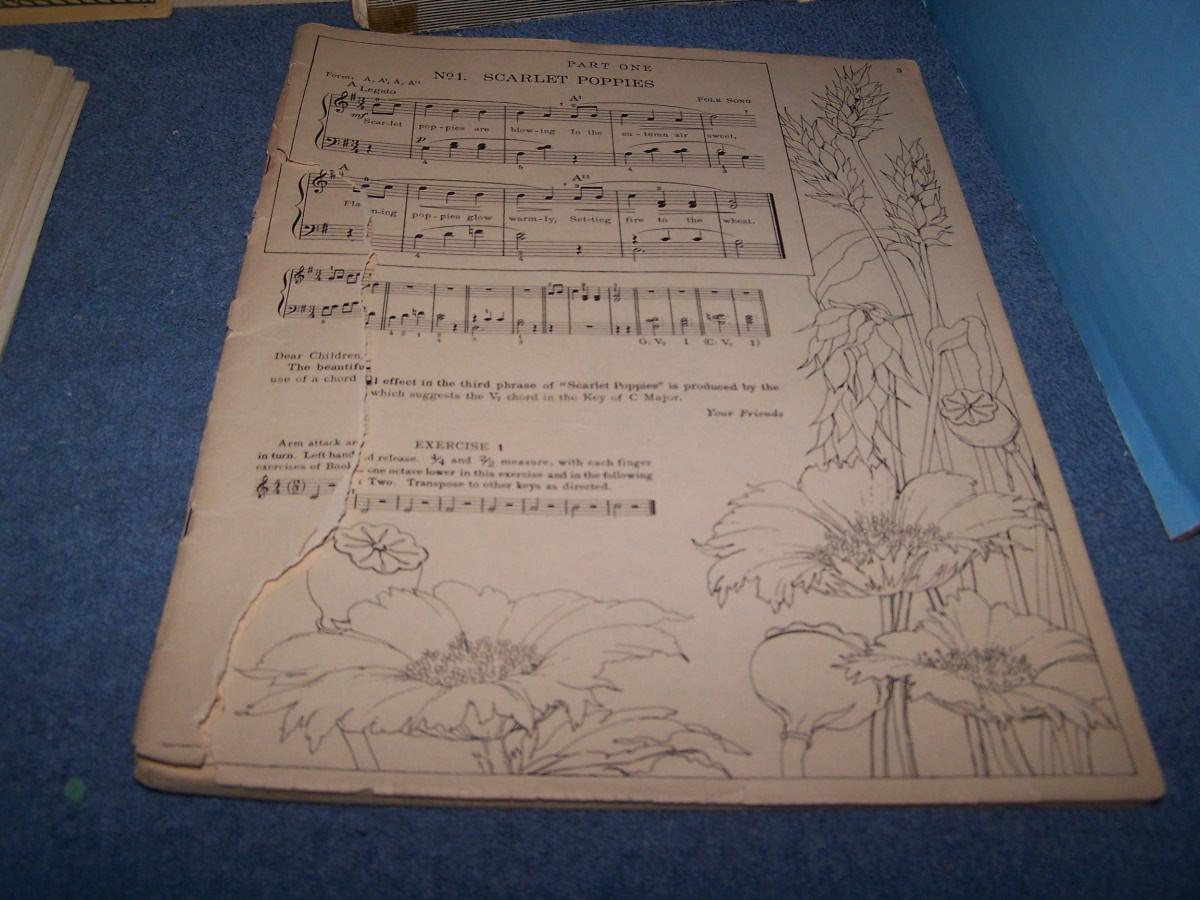 3
PART ONE
Form, A, A¹, A, A¹¹
Nº 1. SCARLET POPPIES
A Legato
A¹
FOLK SONG
mf
Scarlet pop-pies are blow-ing In the au-tumn air sweet,
p
A
A¹¹
Fla n-ing pop-pies glow warm-ly, Set-ting fire to the wheat.
G: V₇ I (C: V₇ I)
Dear Children,
The beautifu l effect in the third phrase of "Scarlet Poppies" is produced by the
use of a chord which suggests the V₇ chord in the Key of C Major.
Your Friends
EXERCISE 1
Arm attack an d release. 4/4 and 2/2 measure, with each finger
in turn. Left hand one octave lower in this exercise and in the following
exercises of Book Two. Transpose to other keys as directed.